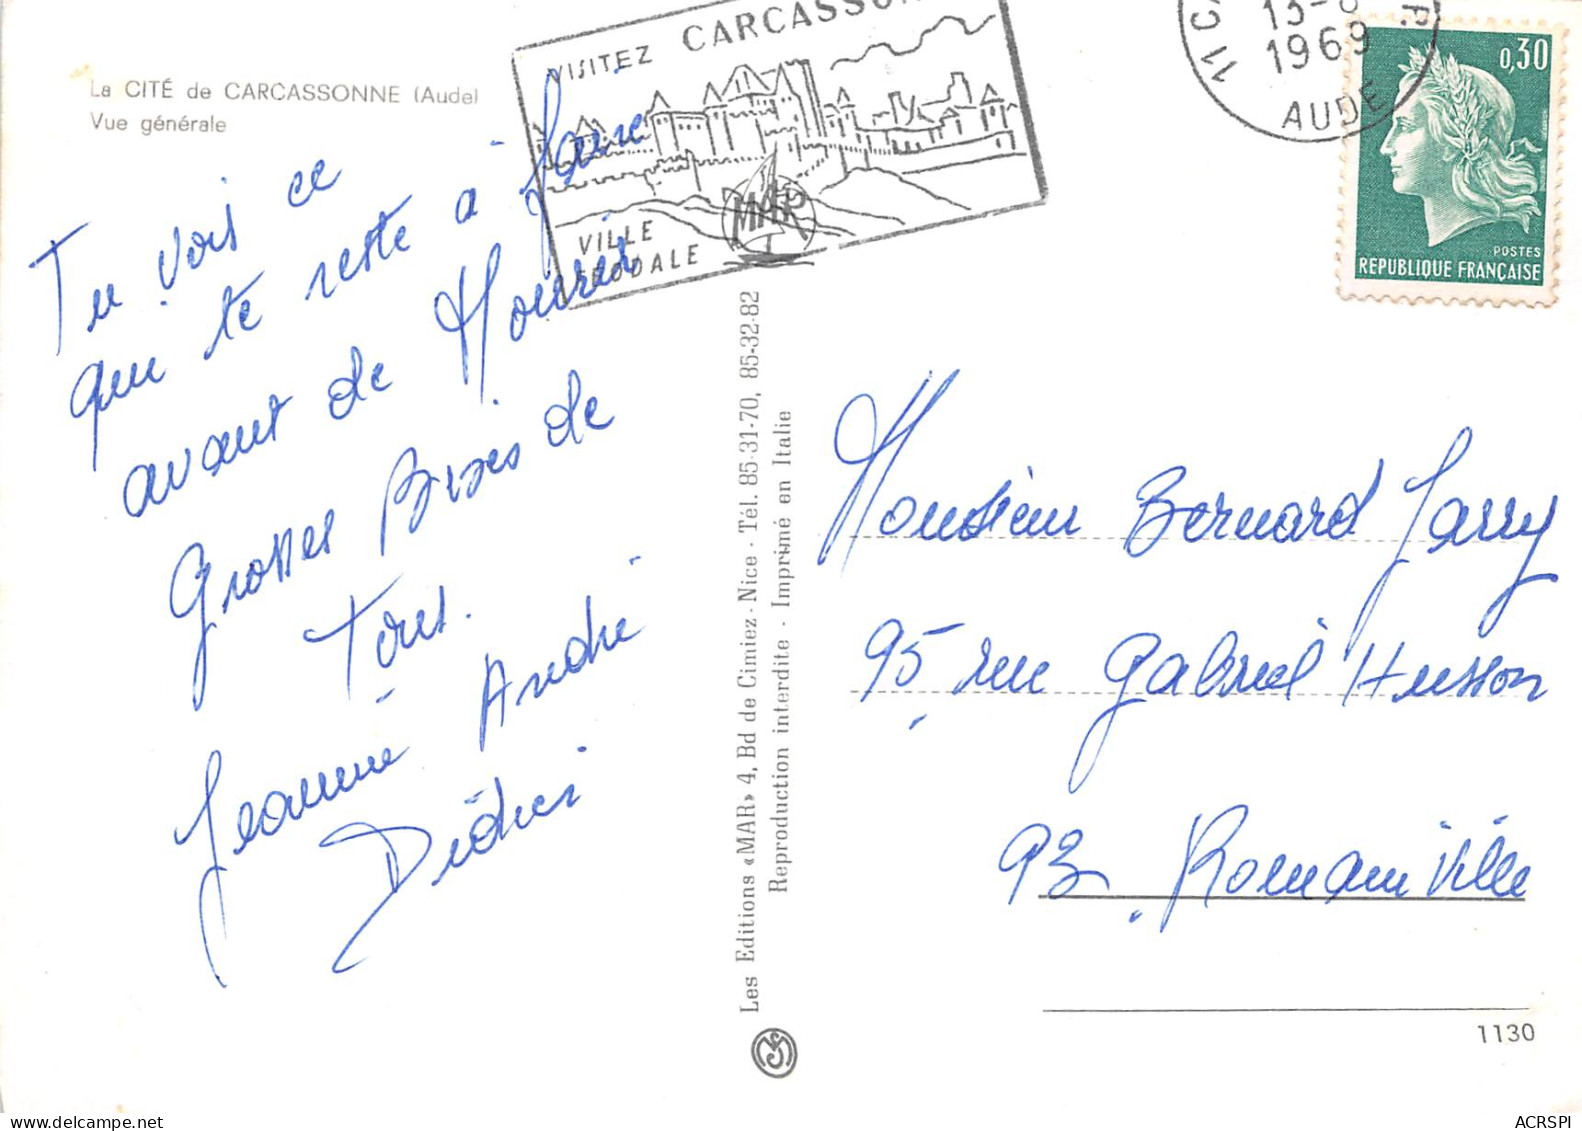 La CITÉ de CARCASSONNE (Aude)
Vue générale
VISITEZ
VILLE
MAR
13-8
1969
AUDE
0,30
POSTES
REPUBLIQUE FRANÇAISE
Tu vois ce
que te reste à faire
avant de Mourir
Grosses Bises de
Tous.
Jeannine André
Didier
Les Editions «MAR» 4, Bd de Cimiez - Nice - Tél. 85-31-70, 85-32-82
Reproduction interdite - Imprimé en Italie
Monsieur Bernard Jarry
95, rue Gabriel Husson
93, Romainville
1130
ACRSPI